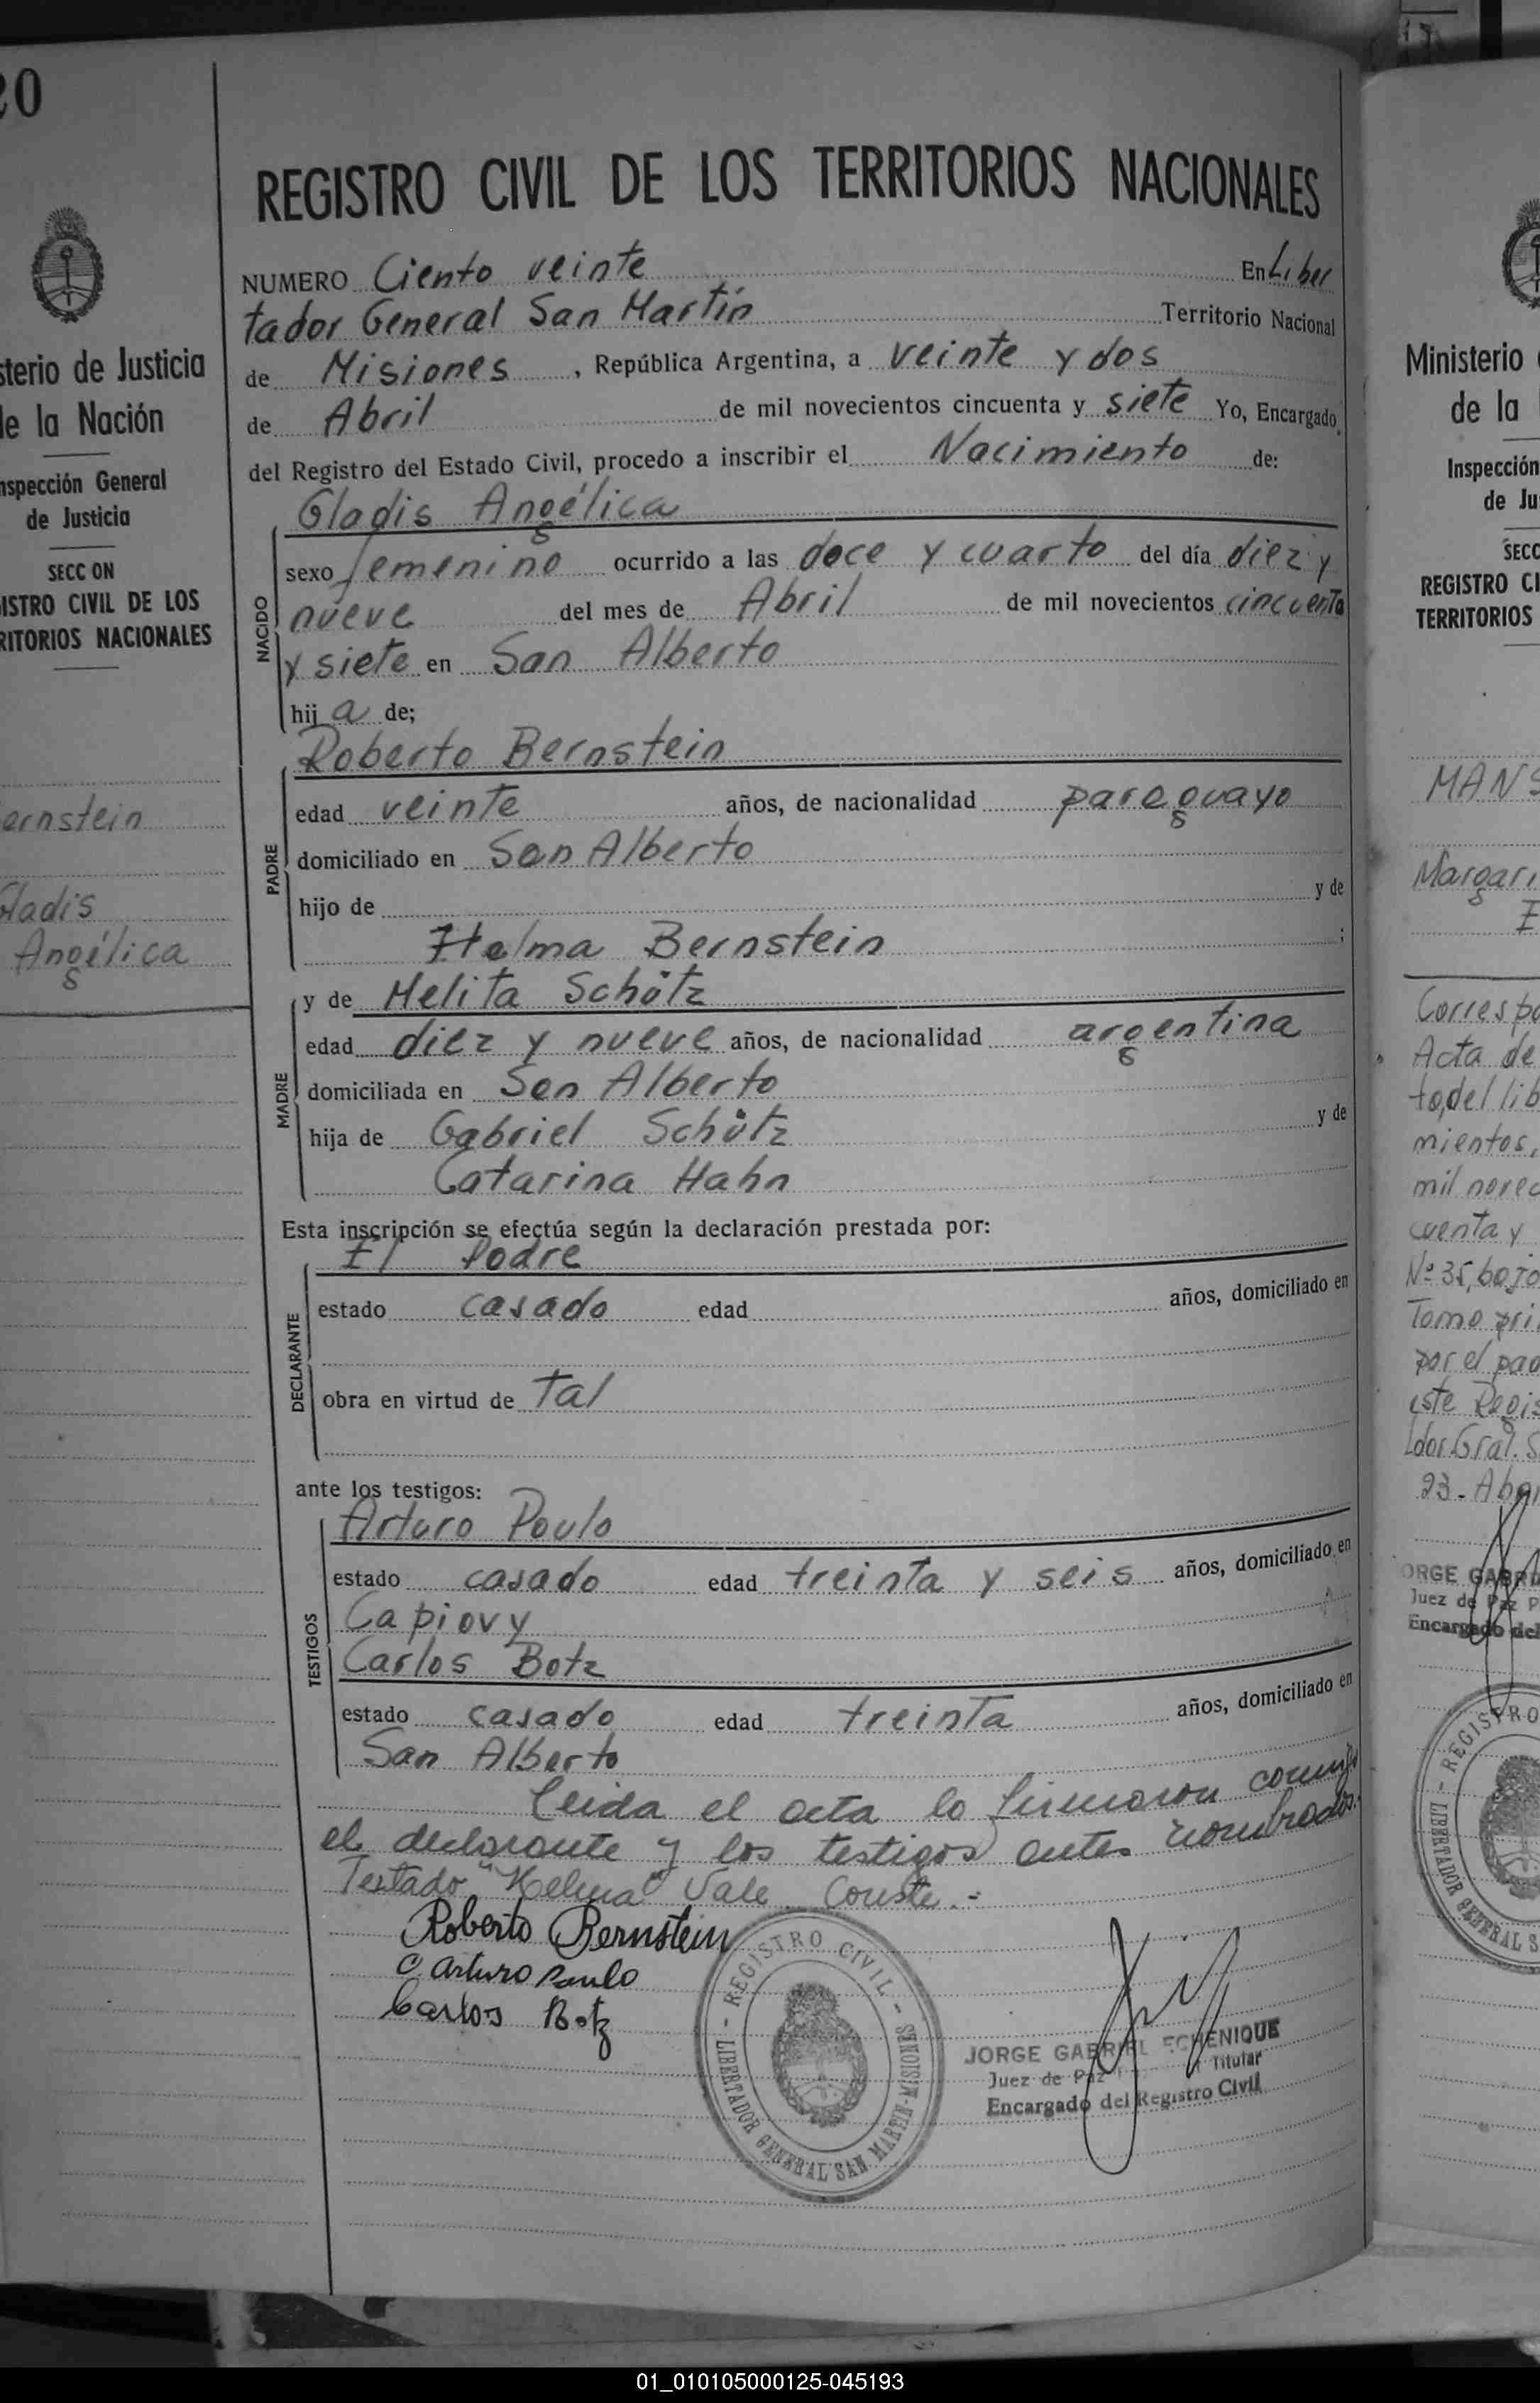 20
sterio de Justicia
de la Nación
nspección General
de Justicia
SECC ON
ISTRO CIVIL DE LOS
RITORIOS NACIONALES
ernstein
Gladis
Angélica
REGISTRO CIVIL DE LOS TERRITORIOS NACIONALES
NUMERO Ciento veinte En Liber
tador General San Martín Territorio Nacional
de Misiones, República Argentina, a veinte y dos
de Abril de mil novecientos cincuenta y siete Yo, Encargado
del Registro del Estado Civil, procedo a inscribir el Nacimiento de:
NACIDO
Gladis Angélica
sexo femenino ocurrido a las doce y cuarto del día diez y
nueve del mes de Abril de mil novecientos cincuenta
y siete en San Alberto
hij a de;
PADRE
Roberto Bernstein
edad veinte años, de nacionalidad paraguayo
domiciliado en San Alberto
hijo de y de
Helma Bernstein ;
MADRE
y de Melita Schütz
edad diez y nueve años, de nacionalidad argentina
domiciliada en San Alberto
hija de Gabriel Schütz y de
Catarina Hahn
Esta inscripción se efectúa según la declaración prestada por:
DECLARANTE
El Padre
estado casado edad años, domiciliado en
obra en virtud de Tal
ante los testigos:
TESTIGOS
Arturo Paulo
estado casado edad treinta y seis años, domiciliado en
Capiovy
Carlos Botz
estado casado edad treinta años, domiciliado en
San Alberto
Leida el acta la firmaron
el declarante y los testigos antes nombrados.
Testado "Helma" Vale Conste.-
Roberto Bernstein
C Arturo Paulo
Carlos Botz
- REGISTRO CIVIL -
LIBERTADOR GENERAL SAN MARTIN-MISIONES
JORGE GABRIEL ECHENIQUE
Juez de Paz Titular
Encargado del Registro Civil
Ministerio
de la
Inspección
de Ju
SECC
REGISTRO CI
TERRITORIOS
MANS
Margari
E
Correspo
Acta de
to, del lib
mientos,
mil novec
cuenta y
Nº 35, bajo
Tomo pri
por el pad
este Regis
Ldor. Gral. S
23 - Abri
ORGE GABRI
Juez de Paz P
Encargado del
- REGISTRO
LIBERTADOR GENERAL S
01_010105000125-045193